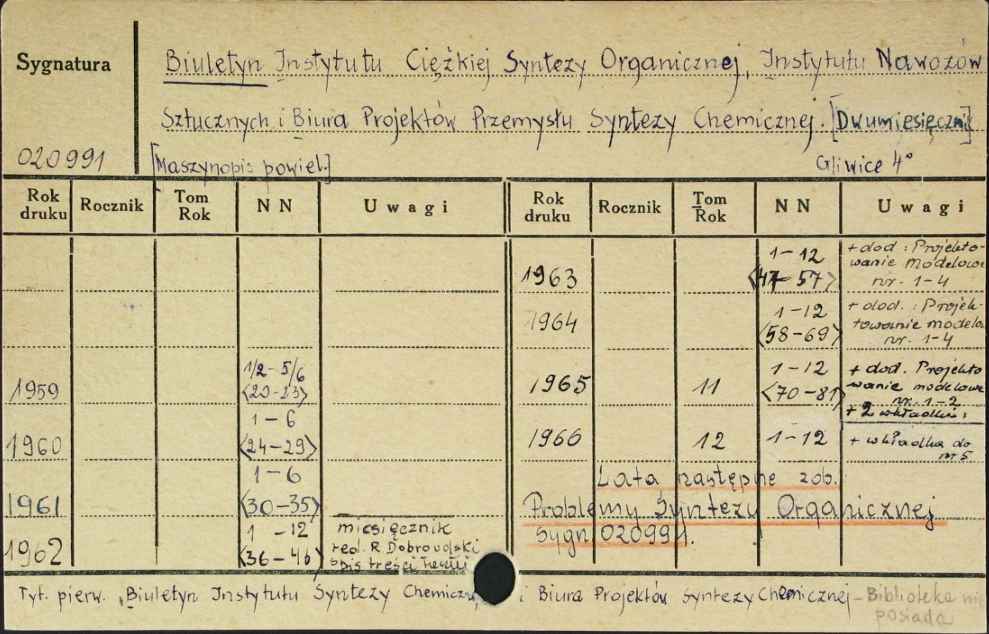 Sygnatura
Biuletyn Instytutu Ciężkiej Syntezy Organicznej, Instytutu Nawozów
Sztucznych i Biura Projektów Przemysłu Syntezy Chemicznej. [Dwumiesięcznik]
020991 [Maszynopis powiel.] Gliwice 4°
Rok druku Rocznik Tom Rok N N Uwagi Rok druku Rocznik Tom Rok N N Uwagi
1963 1-12 <47-57> + dod: Projekto-
wanie modelowe
nr. 1-4
1964 1-12 <58-69> + dod.: Projek-
towanie modelo
nr. 1-4
1959 1/2-5/6 <20-23>
1965 11 1-12 <70-81> + dod. Projekto
wanie modelowe
nr. 1-2
+ 2 wkładki:
1960 1-6 <24-29>
1966 12 1-12 + wkładka do
nr 5
1961 1-6 <30-35>
Lata następne zob.
Problemy Syntezy Organicznej
sygn. 020991.
1962 1-12 <36-46> miesięcznik
red. R. Dobrowolski
spis treści
Tyt. pierw. „Biuletyn Instytutu Syntezy Chemiczn i Biura Projektów Syntezy Chemicznej - Biblioteka nie
posiada